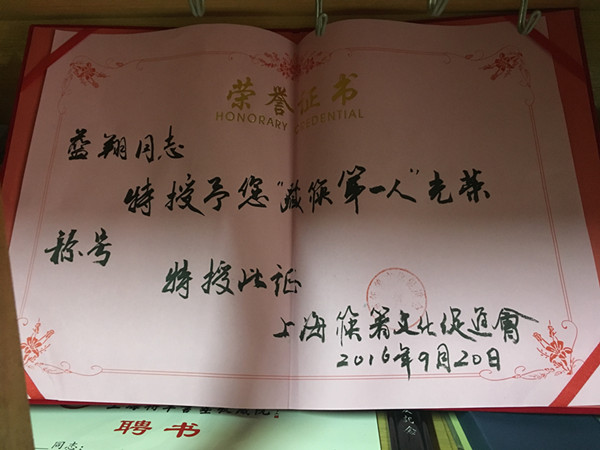 荣誉证书
HONORARY CREDENTIAL
蓝翔同志
特授予您"藏筷第一人"光荣
称号
特授此证
上海筷箸文化促进會
2016年9月20日
聘书
同志: